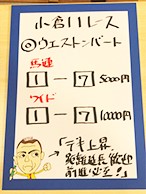 小倉11レース
◎ウエストンバート
馬連
1－7 5000円
ワイド
1－7 10000円
「デキ上昇
距離延長歓迎
前進必至!」